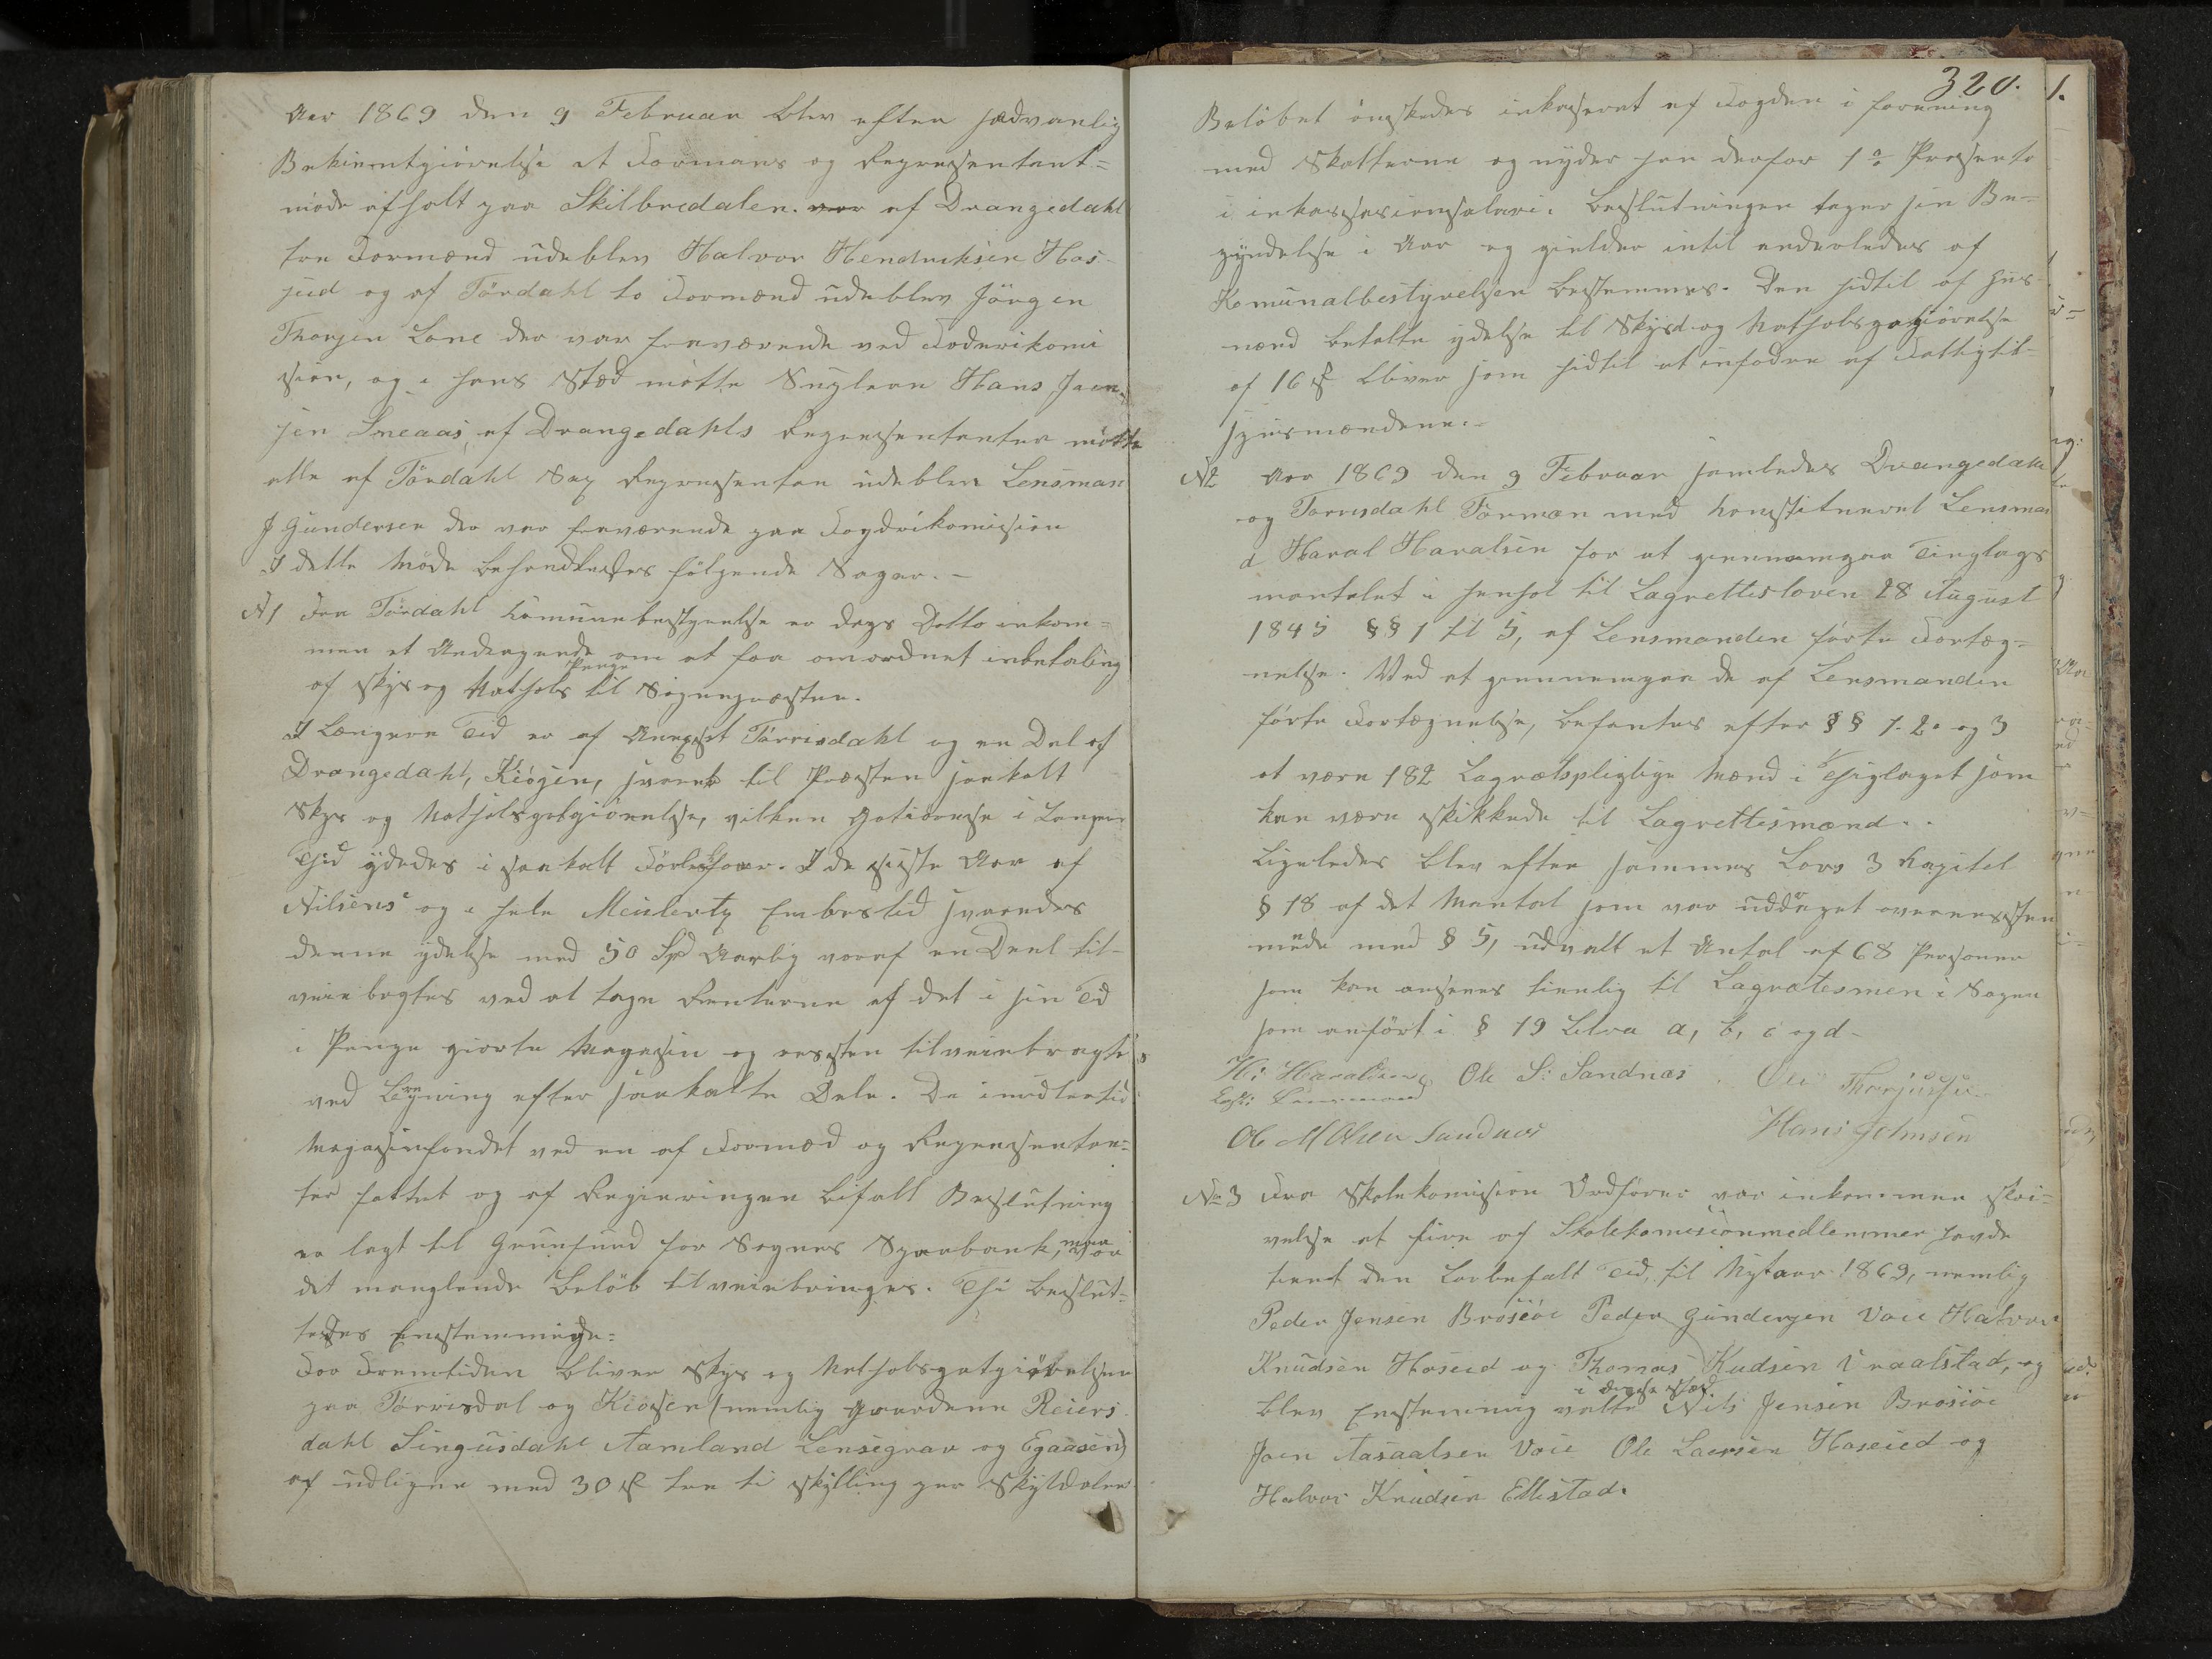 Aar 1869 den 9 Februar blev efter sædvanlig
Bekientgiørelse et Formans og Representant=
møde afholt paa Skilbredalen. var af Drangedahl
tre Formænd udeblev Halvor Hendriksen Hos-
seid og af Tørdahl to Formænd udeblev Jörgen
Thorsen Lone der var fraværende ved Foderikomi
sion, og i hans Sted møtte Suplean Hans Jaen-
sen Sneaas, af Drangedahls Representanter møtte
alle af Tördahl Sag Represenan udeblev Lensman
J Gundersen der var fraværende paa Fogdrikomision
I dette Møde behandledes følgende Sager.-
N1 Fra Tördahl Comunebestyrelse er dags Datto inkom=
men et Andragende om at faa omordnet inbetaling
Penge
af skys og Natholds til Sognepræsten.
I Længere Tid er af Annexet Tørrisdahl og en Del af
Drangedahl, Kiösen, svaret til Præsten saakalt
Skys og Natholdsgotgiørelse, vilken Gotiørelse i Længere
Tid ydedes i saakalt Förlesfoer. I de siste Aar af
Nilsens og i hele Meilertz Embestid svaredes
denne ydelse med 50 Spd Aarlig voraf en Deel til-
veiebragtes ved at tage Renterne af det i sin Tid
i Penge giorte Magasin og resten tilveiebragtes
ved Ligning efter saakalte Dele. Da imidlertid
Magasinfondet ved en af Formæd og Representan=
ter fattet og af Regieringen bifalt Beslutning
er lagt til Grunfund for Sognes Sparbank, maa
det manglende Beløb tilveiebringes. Thi beslut=
tedes Enstemmigde:
For Fremtiden bliver skys og Natholdsgotgiørelsen
paa Tørrisdal og Kiosen (nemlig Gaardene Reiers
dahl Singusdahl Aamland Lensegrav og Egaasen)
at udligne med 30 s treti skilling per Skyldaler
320.
Beløbet ønskedes inkaseret af Fogden i forening
med Skatterne og nyder han derfor 1 Prosento
i inkassasionsalari. Beslutningen tager sin Be=
gyndelse i Aar og gielder intil anderledes af
Komunalbestyrelsen bestemmes. Den hidtil af hus-
mænd betalte ydelse til Skyds og Natholdsgodgiørelse
af 16 s bliver som hidtil at infodre af Fattigfor-
syns mændene.-
N2 Aar 1869 den 9 Februar samledes Drangedahl
og Torrisdahl Formæn med konstitueret Lensman
d Haral Haralsen for at gennemgaa Tinglags
mantalet i henhol til Lagrettisloven 28 August
1845 §§ 1 til 5, af Lensmanden førte Fortæg=
nelse. Ved at gennemgaa de af Lensmanden
førte Fortægnelse, befantes efter §§ 1. 2. og 3
at være 182 Lagrætspligtige Mænd i Thiglaget som
kan være skikkede til Lagrettismænd.
Ligeledes blev efter sammes Lovs 3 Kapitel
§ 18 af det Mantal som var uddraget overensstem
mende med § 5, udvalt et Antal af 68 Personer
som kan ansees tienlig til Lagratesmen i Sager
som anført i § 19 Litra a, b, c og d-
H: Haralsen Ole S: Sandnæs Ole Thorjussen
Const: Lensmand
Ole M Olsen Sandnæs Hans Johnsen
No 3 Fra Skolekomision Ordfører var inkommen skri=
velse at fire af Skolekomisionmedlemmer havde
tient den Lorbefalt Tid, til Nytaar 1869, nemlig
Peder Jensen Brøsiöe Peder Gundersen Voie Halvor
Knudsen Hoseid og Thomas Kudsen Vraalstad, og
i deres sted
blev Enstemmig valte Nils Jensen Brøsiöe
Jaen Aasaalsen Voie Ole Laersen Hoseied og
Halvor Knudsen Ellestad.